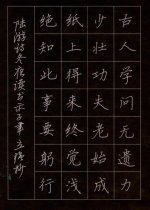 古人学问无遗力
少壮工夫老始成
纸上得来终觉浅
绝知此事要躬行
陆游诗冬夜读书示子聿